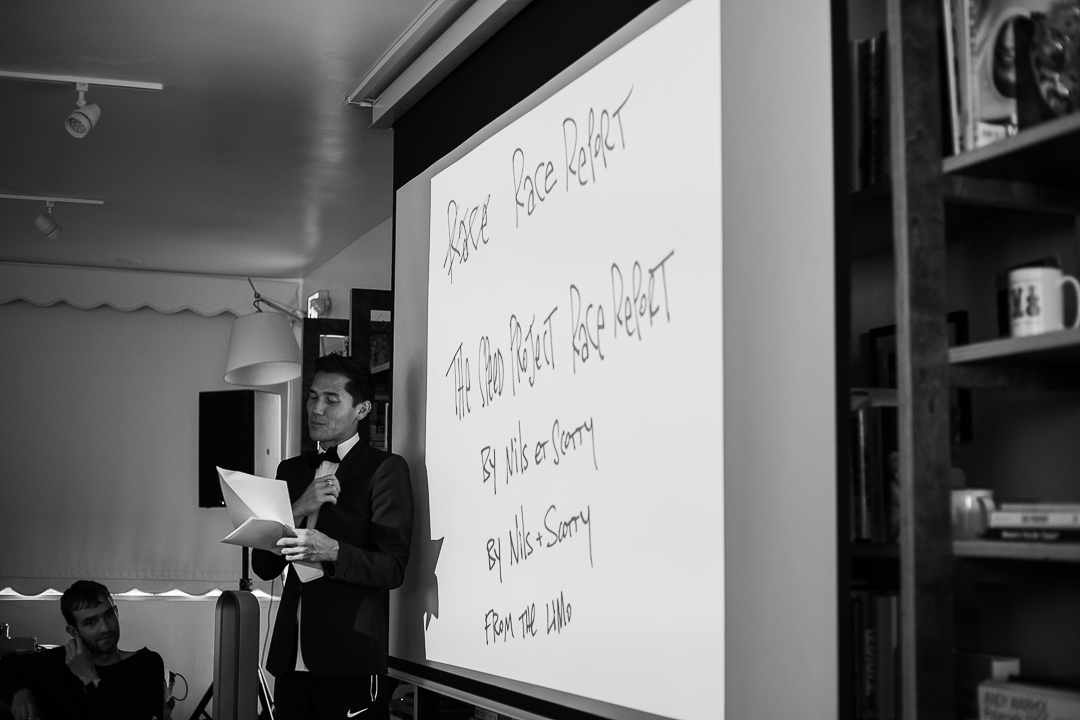 Race Race Report
The Speed Project Race Report
By Nils et Scotty
By Nils + Scotty
From the Limo
ANDY WARHOL